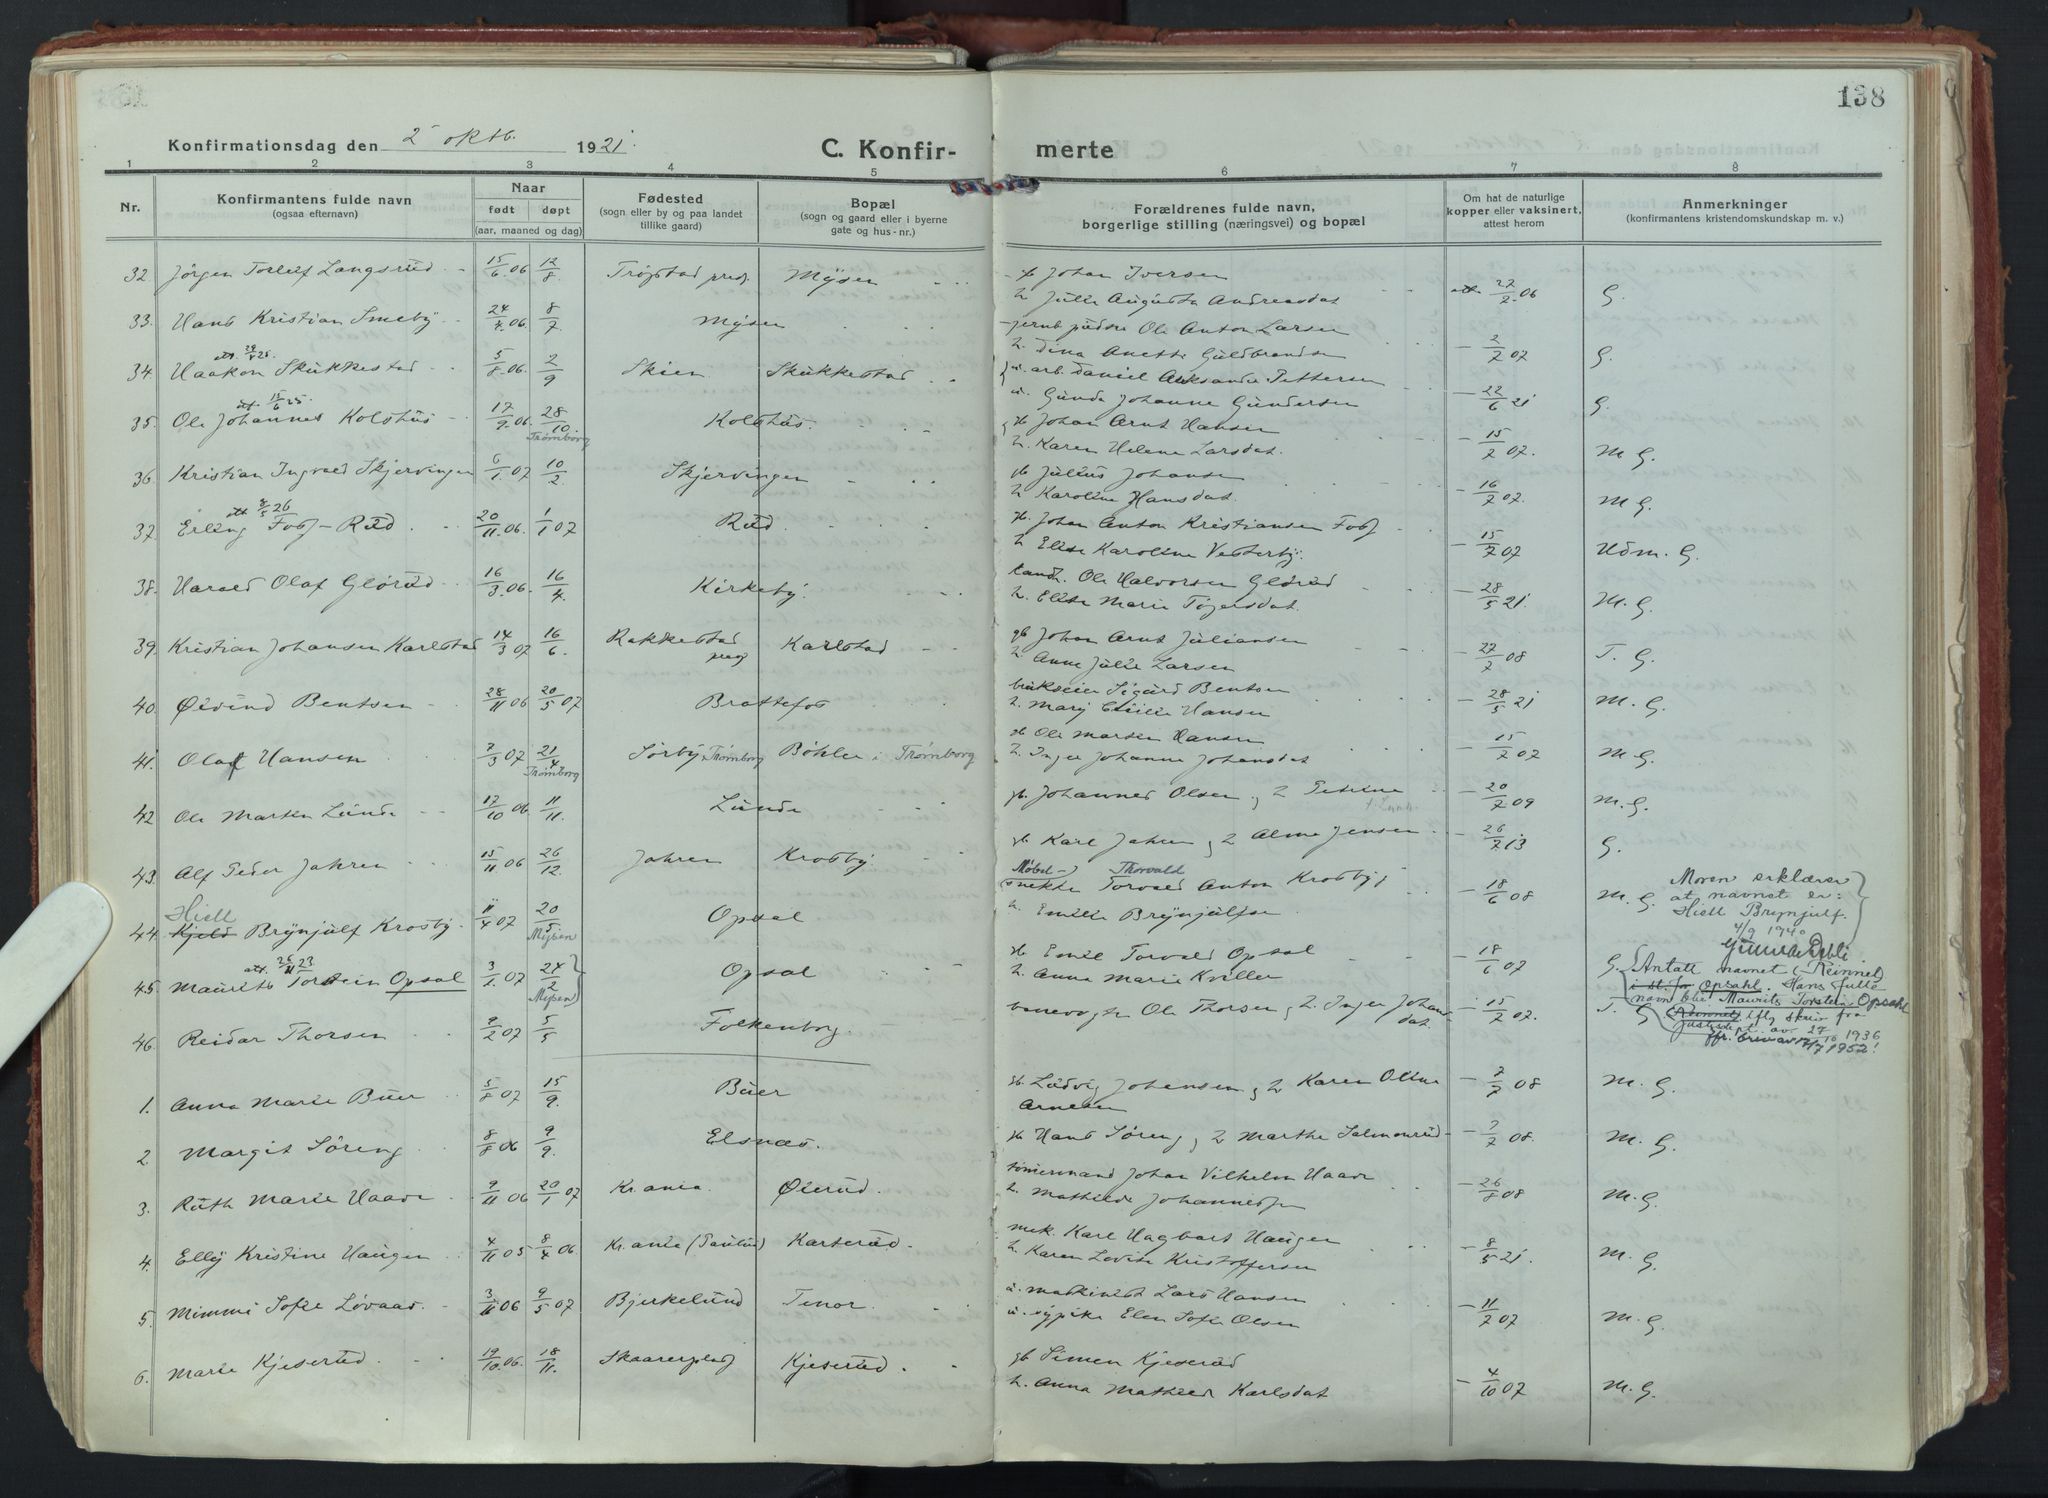 138
Konfirmationsdag den 2 oktb. 1921.
C. Konfir- merte
1 2 3 4 5 6 7 8
Nr.
Konfirmantens fulde navn
(ogsaa efternavn)
Naar
født døpt
(aar, maaned og dag)
Fødested
(sogn eller by og paa landet
tillike gaard)
Bopæl
(sogn og gaard eller i byerne
gate og hus-nr.)
Forældrenes fulde navn,
borgerlige stilling (næringsvei) og bopæl
Om hat de naturlige
kopper eller vaksinert,
attest herom
Anmerkninger
(konfirmantens kristendomskundskap m. v.)
32. Jörgen Torleif Langsrud 15/6 06 12/8 Trøgstad Mysen
Johan Iversen
h. Julie Augusta Andreasdat att. 27/2 06 G.
33. Hans Kristian Smeby 24/4 06. 8/7 Mysen
jernb. pudser Ole Anton Larsen
h. Dina Anette Guldbrandsen 2/7 07 G.
att. 29/5 25
34. Haakon Skukkestad 5/8 06. 2/9 Skien Skukkestad
u. arb. Daniel Aleksander Pettersen
u. Gunda Johanne Gundersen 22/6 21 G.
att. 15/6 25.
35. Ole Johannes Kolshus 17/9 06. 28/10. Trømborg Kolshus.
Johan Arnt Hansen
h. Karen Helene Larsdat. 15/7 07. M G.
36. Kristian Ingvald Skjervingen 6/1 07 10/2. Skjervingen
gb Julius Johansen
h. Karoline Hansdat. 16/7 07. M G.
att 8/5 26
37. Erling Foss-Rud. 20/11 06. 1/1 07 Rud.
gb. Johan Anton Kristiansen Foss
h. Elise Karoline Vesterby. 15/7 07 Udm. G.
38. Harald Olaf Glørud 16/3 06. 16/4. Kirkeby.
landh. Ole Halvorsen Glørud
h. Elise Marie Tøgersdat. 28/5 21. M. G.
39. Kristian Johansen Karlstad 14/3 07 16/6. Rakkestad Karlstad
gb Johan Arnt Juliansen
h. Anne Julie Larsen 27/7 08 T. G.
40. Øivind Bentsen 28/11 06 20/5 07 Brattefos
brukseier Sigurd Bentsen
h. Mary Hansen 28/5 21 M. G.
41. Olaf Hansen 7/3 07 21/4 Trømborg Sørby i Trømborg Bøhler i Trømborg
gb Ole Martin Hansen
h. Inger Johanne Johansdat 15/7 07 M G.
42 Ole Martin Lunde 17/10 06 11/11. Lunde
gb. Johannes Olsen og h 20/7 09 M. G.
43. Alf Peder Jahren 15/11 06 26/12. Jahren Krosby.
gb Karl Jahren og h Alma Jensen 26/7 13 G.
Hjell
44. Kjeld Brynjulf Krosby. 11/4 07 20/5 Mysen Opsal
Møbel- Thorvald
snekker Torvald Anton Krosby
h. Emilie Brynjulfsen 18/6 08 M. G.
Moren erklærer
at navnet er:
Hjell Brynjulf.
4/9 1940
att. 25/11 23
45. Maurits Torstein Opsal 3/1 07 24/2 Mysen Opsal
gb Emil Torvald Opsal
h. Anna Marie Kviller 18/6 07 G.
Antatt navnet (Reinnel)
i st. for Opsahl. Hans fulle
navn blir Maurits Torstein Opsahl
(Reinnel) iflg. skriv fra
Justisdept. av 27/10 1936
jfr. brev av 17/7 1952!
46. Reidar Thorsen 9/2 07 5/5 Folkenborg.
banevogter Ole Thorsen, h. Inger Johansdat. 15/7 07. T. G
1. Anna Marie Buer 5/8 07 15/9. Buer
gb. Ludvig Johansen og h Karen Oline
Arnesen 7/7 08 M. G.
2. Margit Søreng 8/8 06 9/9. Elsnes.
gb Hans Søreng, h Marthe Salmonrud 7/7 08. M G.
3. Ruth Marie Haave 9/11 06 20/1 07 Kr.ania. Øierud.
tømmermand Johan Vilhelm Haave
h. Mathilde Johannessen 26/8 08 M. G.
4. Elly Kristine Haugen 4/11 05 8/4 06. Kr.ania (Paulus) Karterud.
mek. Karl Hagbart Haugen
h. Karen Lovise Kristoffersen 8/5 21. M. G.
5. Mimmi Sofie Løvaas. 3/11 06 9/5 07 Bjerkelund Tenor.
u. maskinist Lars Hansen
u. sypike Elen Sofie Olsen 11/7 07 M. G.
6. Marie Kjeserud. 19/10 06. 18/11. Skaarerplads Kjeserud
gb Simen Kjeserud
h. Anna Mathilde Karlsdat 4/10 07 M. G.